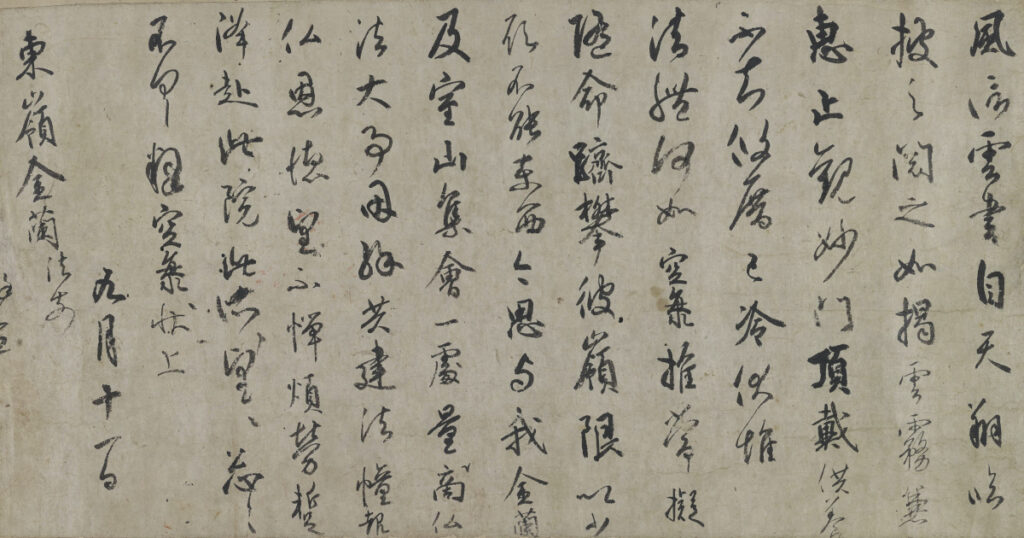 風信雲書自天翔臨
披之閲之如揭雲霧兼
惠止觀妙門頂戴供養
不知攸厝已冷伏惟
法體何如空海推常擬
隨命躋攀彼嶺限以少
願不能東西今思与我金蘭
及室山集會一處量商仏
法大事因縁共建法幢報
仏恩徳望不憚煩勞蹔
降赴此院此所望々忩々
不具釋空海状上
九月十一日
東嶺金蘭法前